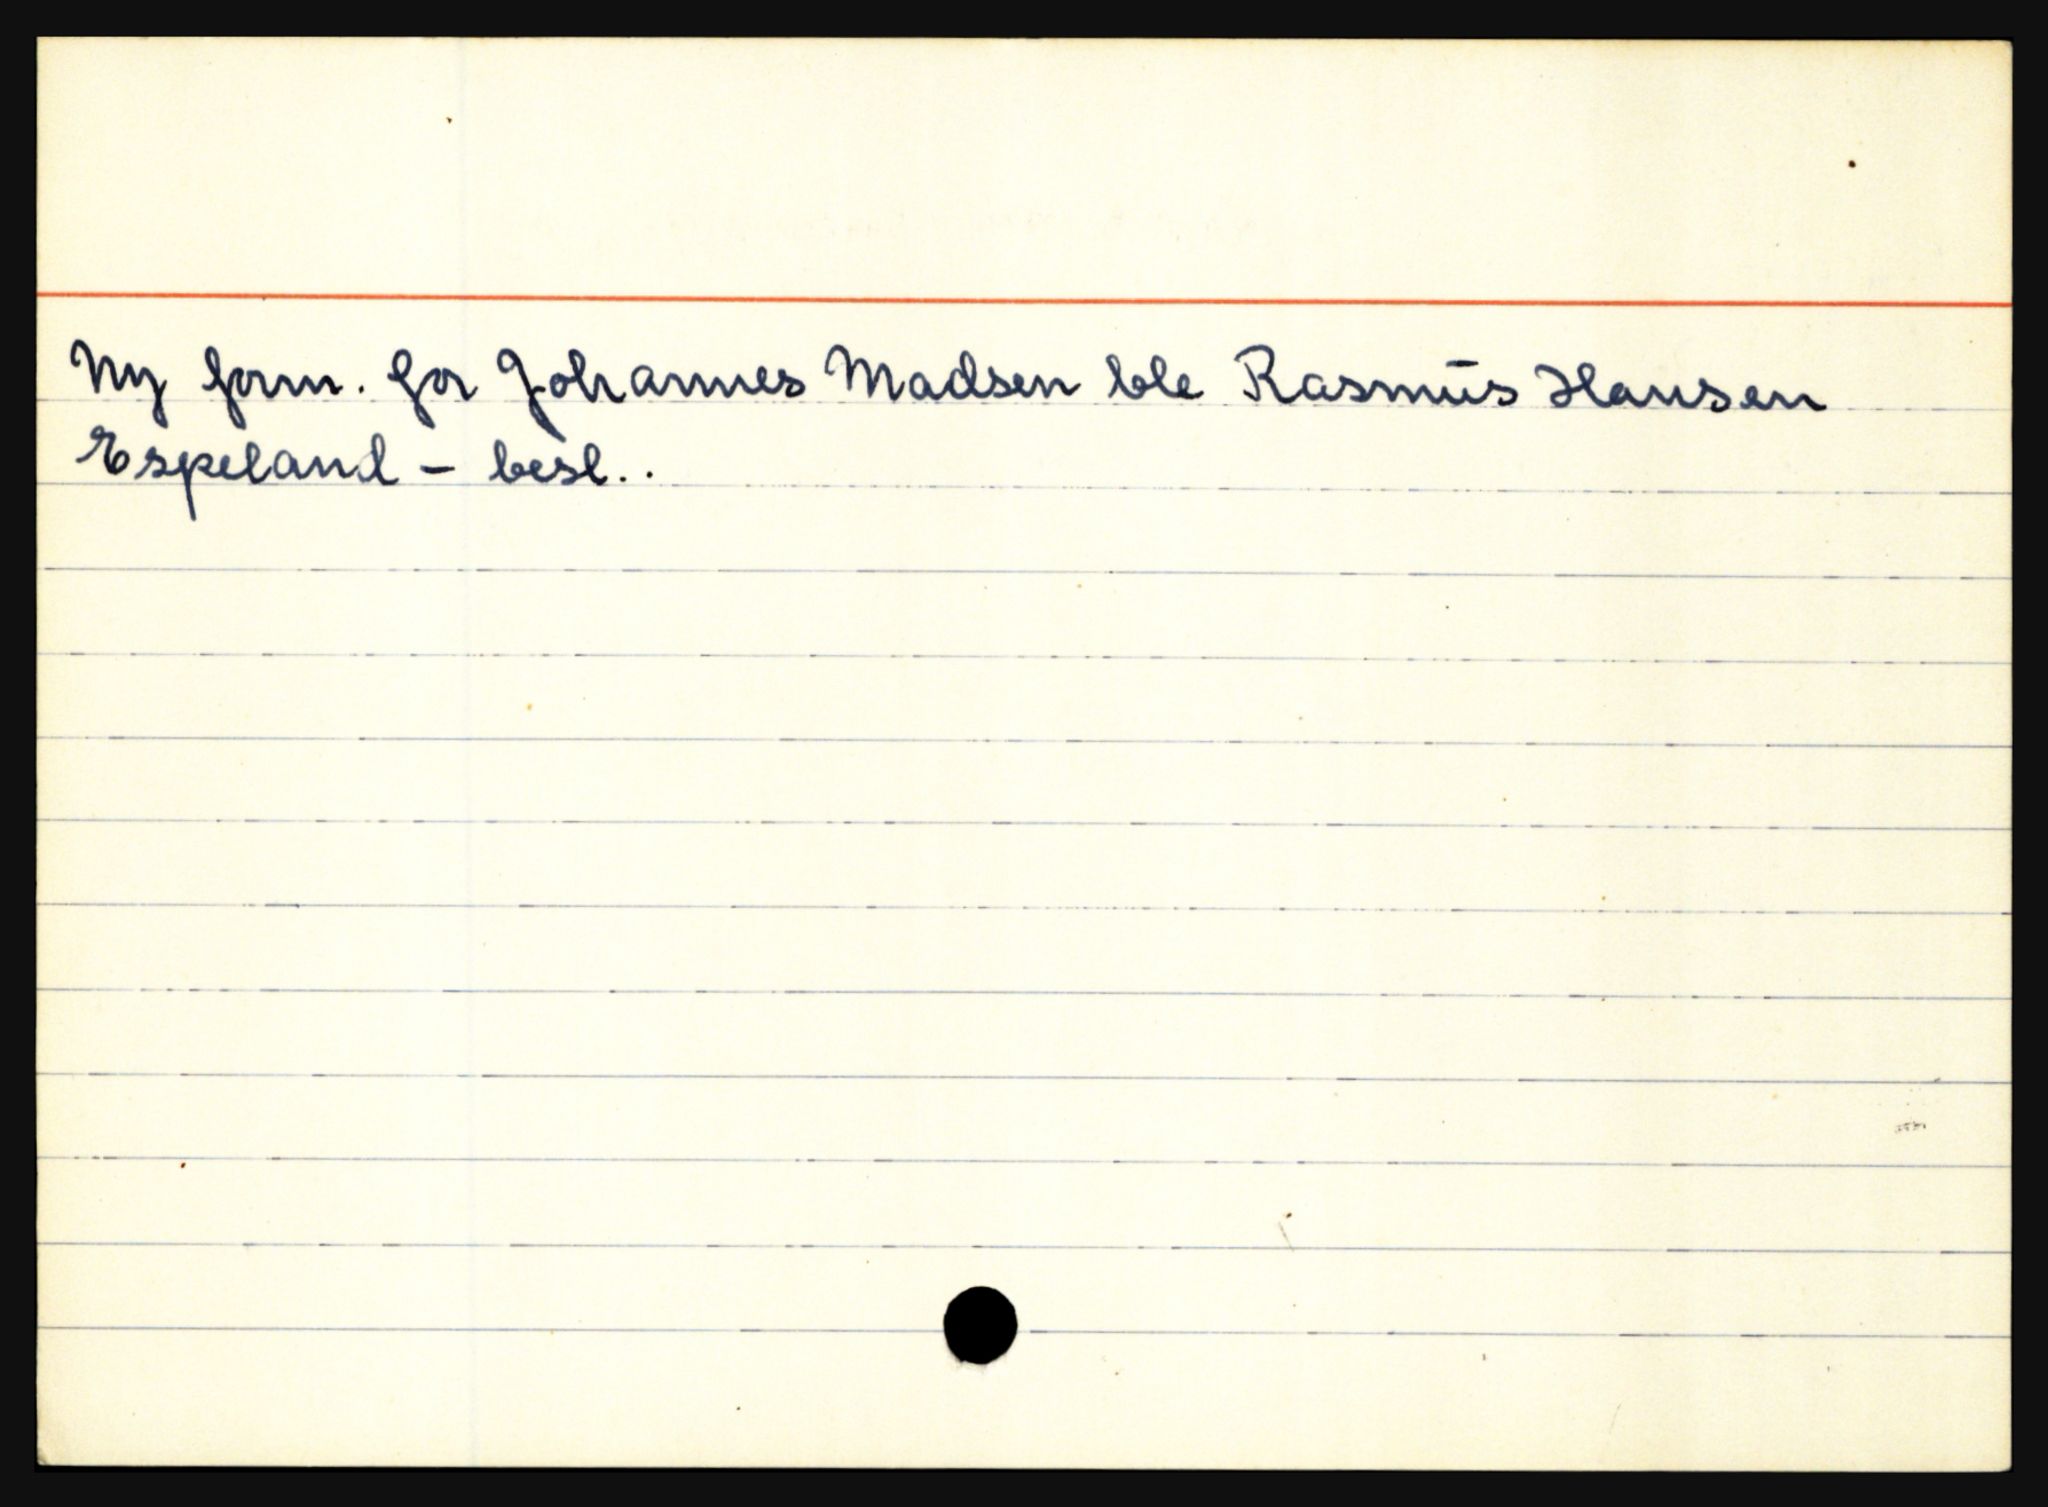 Ny form. for Johannes Madsen ble Rasmus Hansen
Espeland - besl..